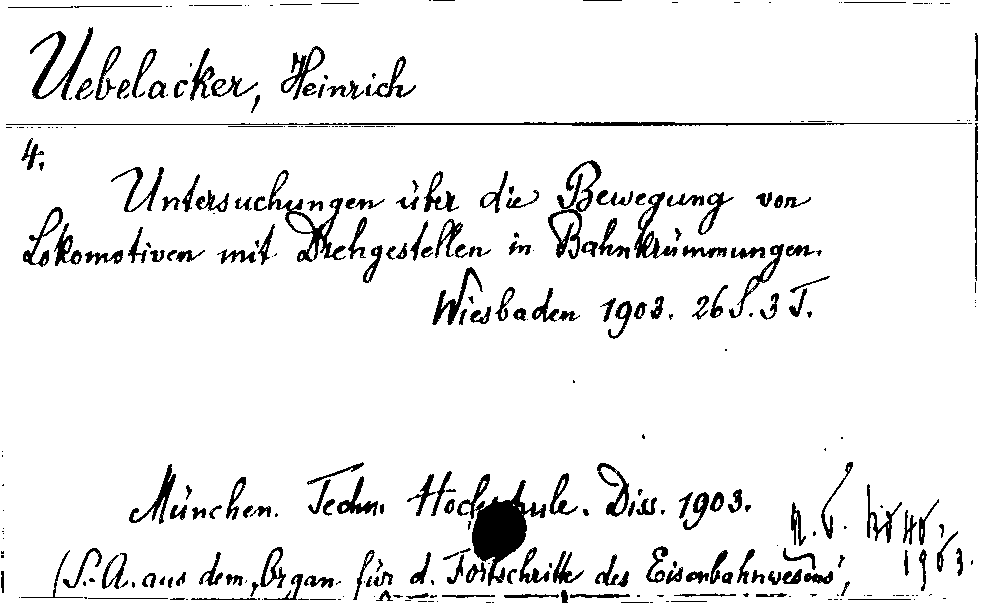 Uebelacker, Heinrich
4.
Untersuchungen über die Bewegung von
Lokomotiven mit Drehgestellen in Bahnkrümmungen.
Wiesbaden 1903. 26 S. 3 T.
München. Techn. Hochschule. Diss. 1903.
(S.-A. aus dem „Organ für d. Fortschritte des Eisenbahnwesens",
1903.